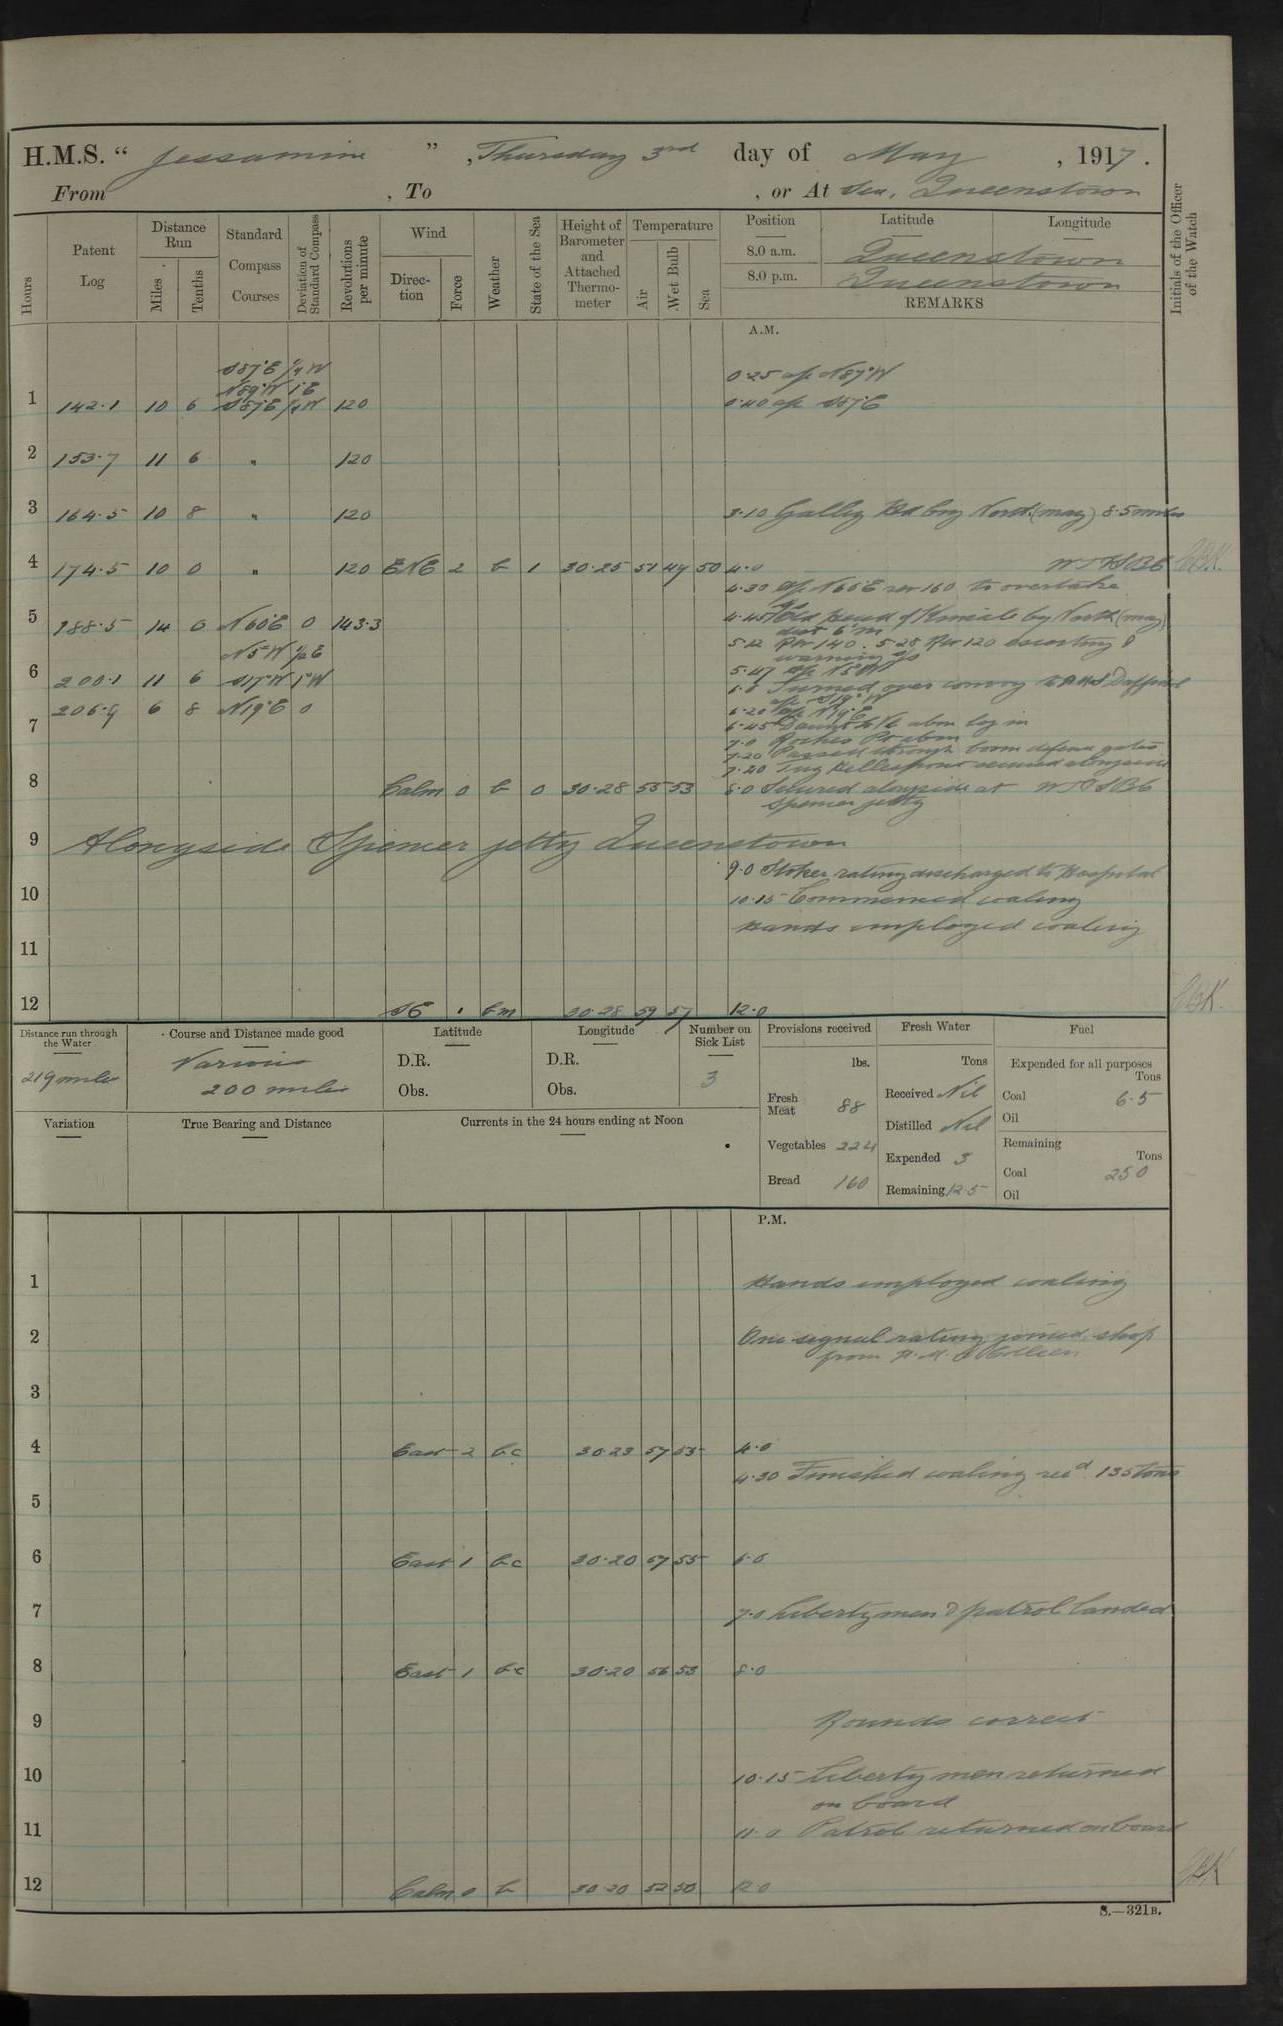 H.M.S. " Jessamine ", Thursday 3rd day of May, 1917.
From , To , or At Sea, Queenstown
Hours
Patent Log
Distance Run
Miles
Tenths
Standard Compass Courses
Deviation of Standard Compass
Revolutions per minute
Wind
Direction
Force
Weather
State of the Sea
Height of Barometer and Attached Thermometer
Temperature
Air
Wet Bulb
Sea
Position Latitude Longitude
8.0 a.m. Queenstown
8.0 p.m. Queenstown
REMARKS
Initials of the Officer of the Watch
A.M.
S87°E 1/4 W
N89°W 1°E 0.25 a/c N89°W
1 142.1 10 6 S87°E 1/4 W 120 0.40 a/c S87°E
2 153.7 11 6 " 120
3 164.5 10 8 " 120 3.10 Galley Hd brg North (mag) 8.5 miles
4 174.5 10 0 " 120 ENE 2 b 1 30.25 51 49 50 4.0
4.30 a/c N60°E rev 160 to overtake
5 188.5 14 0 N60°E 0 143.3 4.45 Old Head of Kinsale brg North (mag)
dist 6' m
5.12 Rev 140. 5.28 Rev 120 escorting
N5°W 1/2 E
5.47 a/c N5°W
6 200.1 11 6 S17°W 1°W 6.0 Turned over convoy to HMS Daffodil
206.9 6 8 N19°E 0 6.20 a/c N19°E
7 6.45 Daunt L/V abm log in
7.0 Roches Pt abm
7.20 Passed through boom defence gates
7.40 Tug Hellespont secured alongside
8 Calm 0 b 0 30.28 55 53 8.0 Secured alongside at
Spencer jetty
9 Alongside Spencer jetty Queenstown
9.0 Stoker rating discharged to Hospital
10 10.15 Commenced coaling
Hands employed coaling
11
12 SE 1 bm 30.28 59 57 12.0
Distance run through the Water
219 miles
Course and Distance made good
Various
200 miles
Latitude
D.R.
Obs.
Longitude
D.R.
Obs.
Number on Sick List
3
Variation
True Bearing and Distance
Currents in the 24 hours ending at Noon
Provisions received
lbs.
Fresh Meat 88
Vegetables 224
Bread 160
Fresh Water
Tons
Received Nil
Distilled Nil
Expended 3
Remaining 12.5
Fuel
Expended for all purposes
Tons
Coal 6.5
Oil
Remaining
Tons
Coal 250
Oil
P.M.
1 Hands employed coaling
2 One signal rating joined ship
from H.M.S Colleen
3
4 East 2 bc 30.23 57 55 4.0
4.30 Finished coaling recd 135 tons
5
6 East 1 bc 30.20 57 55 6.0
7 7.0 Liberty men & patrol landed
8 East 1 bc 30.20 56 53 8.0
9 Rounds correct
10 10.15 Liberty men returned
on board
11 11.0 Patrol returned on board
12 Calm 0 b 30.20 52 50 12.0
S.—321B.